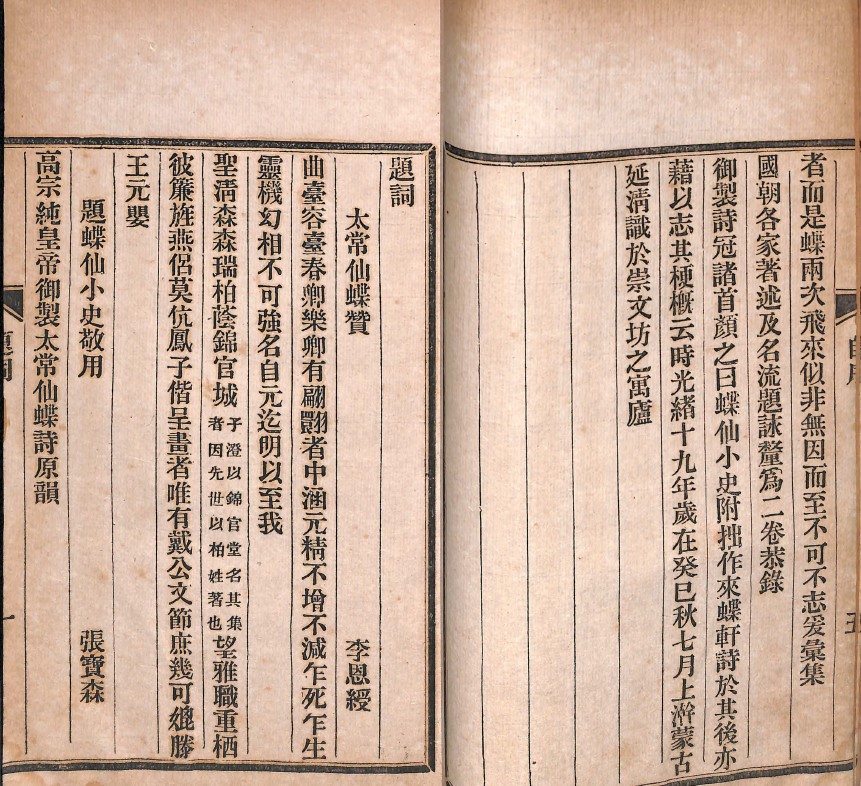 者而是蝶兩次飛來似非無因而至不可不志爰彙集
國朝各家著述及名流題詠釐爲二卷恭錄
御製詩冠諸首顏之曰蝶仙小史附拙作來蝶軒詩於其後亦
藉以志其梗槪云時光緒十九年歲在癸巳秋七月上澣蒙古
延淸識於崇文坊之寓廬
五
題詞
太常仙蝶贊
李恩綬
曲臺容臺春卿樂卿有翩翾者中涵元精不增不減乍死乍生
靈機幻相不可強名自元迄明以至我
聖淸森森瑞柏蔭錦官城
子澄以錦官堂名其集
者因先世以柏姓著也
望雅職重栖
彼簾旌燕侶莫伉鳳子偕呈畫者唯有戴公文節庶幾可媲滕
王元嬰
題蝶仙小史敬用
張寶森
高宗純皇帝御製太常仙蝶詩原韻
題詞
一